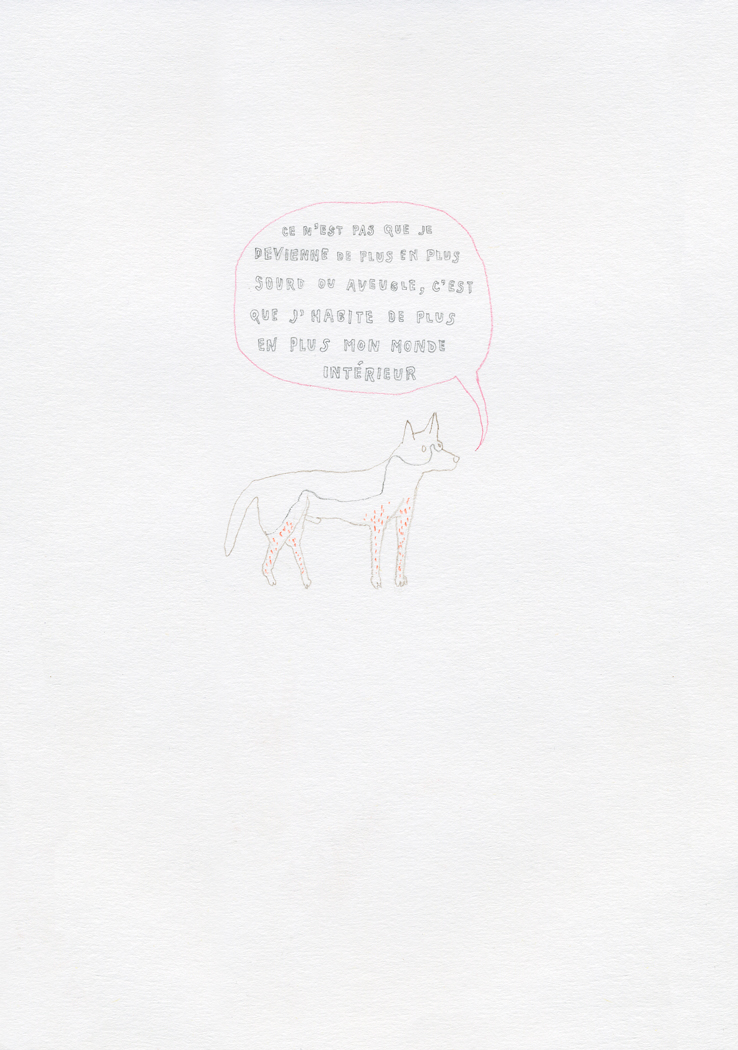 CE N'EST PAS QUE JE
DEVIENNE DE PLUS EN PLUS
SOURD OU AVEUGLE, C'EST
QUE J'HABITE DE PLUS
EN PLUS MON MONDE
INTÉRIEUR